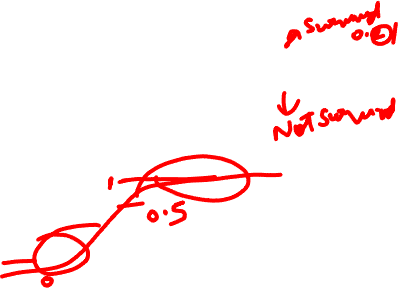 survived
0.81
Not survived
1
0.5
0